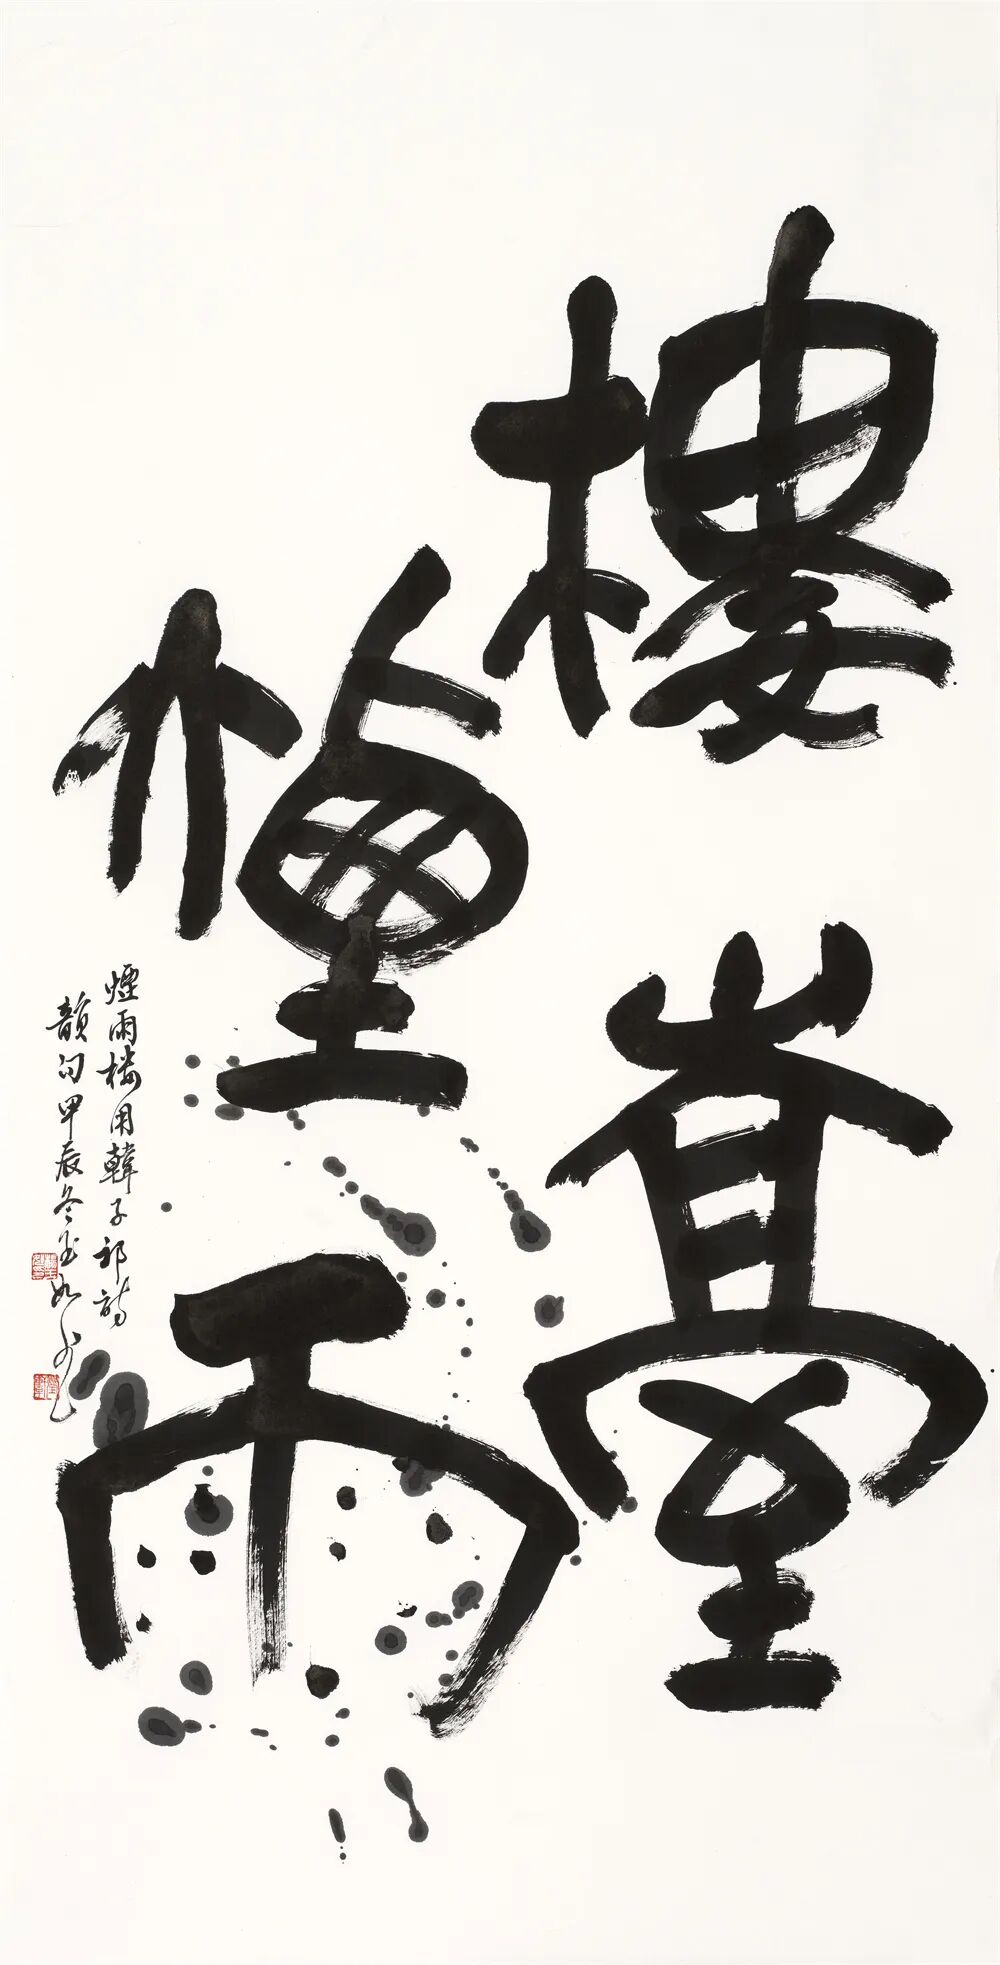 樓臺
煙雨
煙雨楼用韓子祁詩
韻句甲辰冬